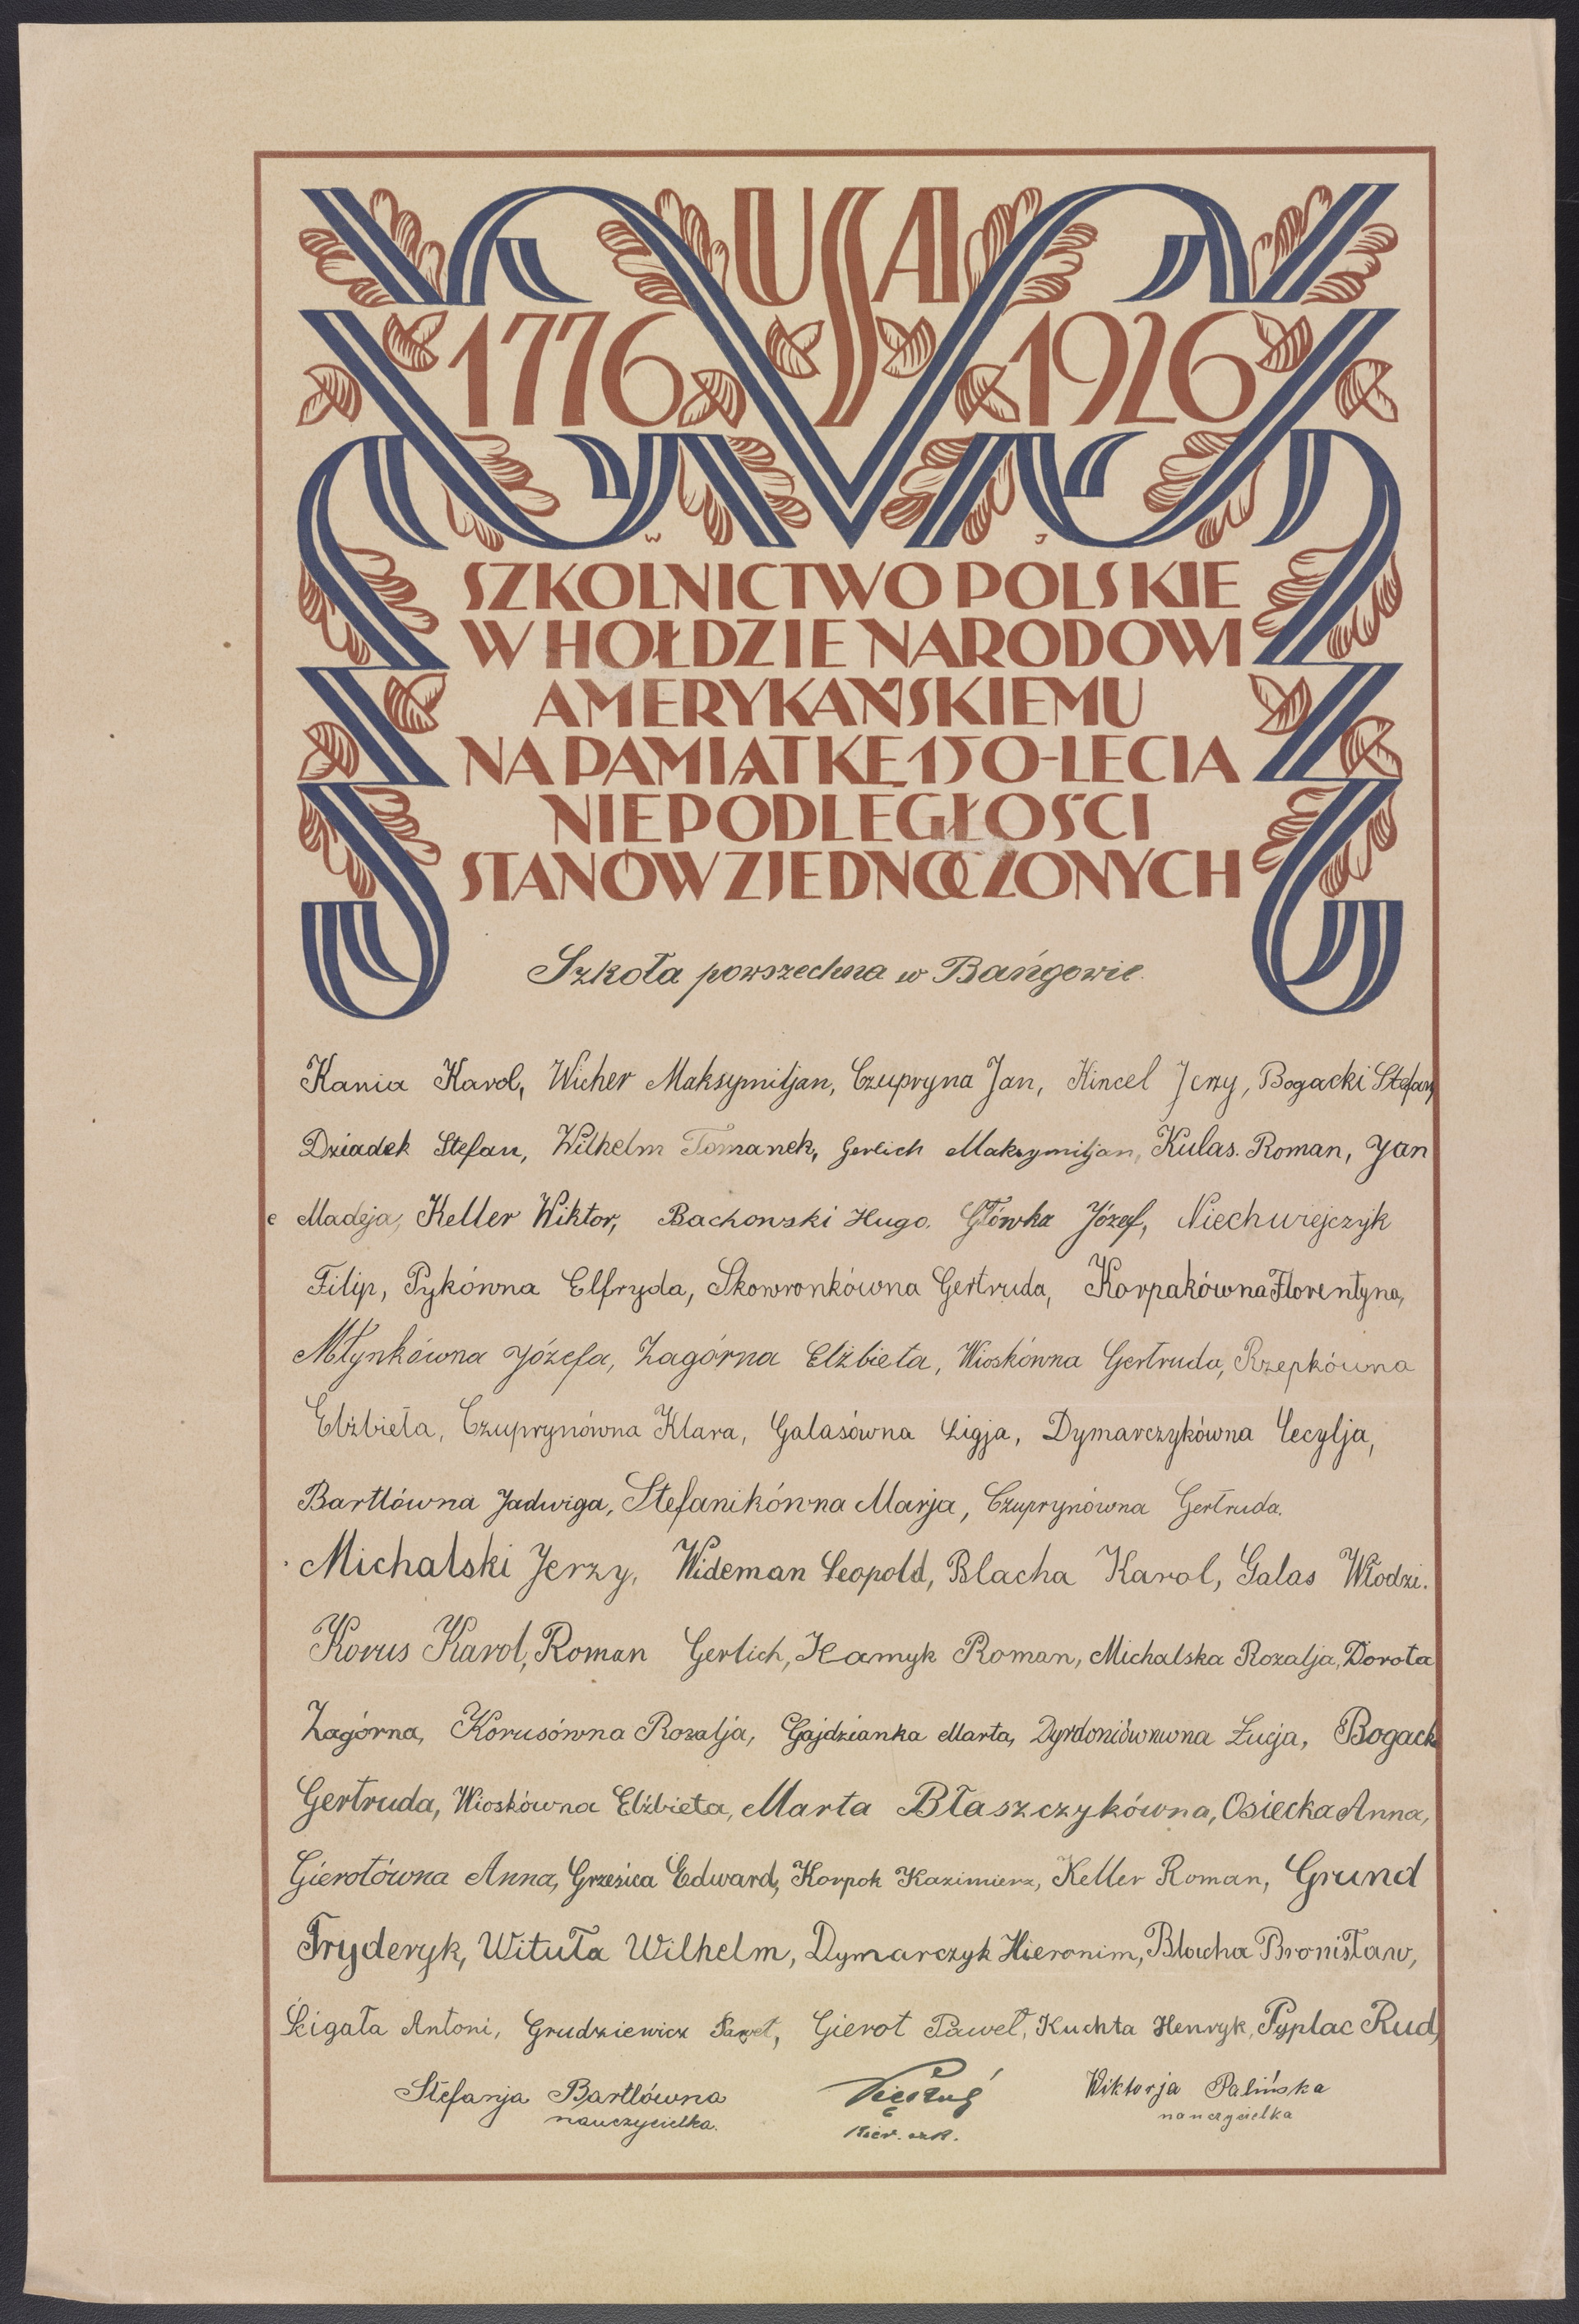 USA
1776 1926
W J
SZKOLNICTWO POLSKIE
W HOŁDZIE NARODOWI
AMERYKAŃSKIEMU
NA PAMIĄTKĘ 150-LECIA
NIEPODLEGŁOŚCI
STANÓW ZJEDNOCZONYCH
Szkoła powszechna w Bańgowie.
Kania Karol, Wicher Maksymiljan, Czupryna Jan, Kincel Jerzy, Bogacki Stefan,
Dziadek Stefan, Wilhelm Tomanek, Gerlich Maksymiljan, Kulas. Roman, Jan
Madeja, Keller Wiktor, Bachowski Hugo. Główka Józef, Niechwiejczyk
Filip, Pykówna Elfryda, Skowronkówna Gertruda, KorpakównaFlorentyna,
Młynkówna Józefa, Zagórna Elżbieta, Wioskówna Gertruda, Rzepkówna
Elżbieta, Czuprynówna Klara, Galasówna Ligja, Dymarczykówna Cecylja,
Bartlówna Jadwiga, Stefanikówna Marja, Czuprynówna Gertruda.
Michalski Jerzy, Wideman Leopold, Blacha Karol, Galas Włodzi.
Korus Karol, Roman Gerlich, Hamyk Roman, Michalska Rozalja, Dorota
Zagórna, Korusówna Rozalja, Gajdzianka Marta, Łucja, Bogack
Gertruda, Wioskówna Elżbieta, Marta Błaszczykówna, Osiecka Anna,
Gierotówna Anna, Grzesica Edward, Korpok Kazimierz, Keller Roman, Grund
Fryderyk, Wituła Wilhelm, Dymarczyk Hieronim, Blacha Bronisław,
Ścigała Antoni, Grudziewicz Paweł, Gierot Paweł, Kuchta Henryk, Pyplac Rud,
Stefanja Bartlówna Wiktorja Palińska
nauczycielka. Kier. szk. nauczycielka